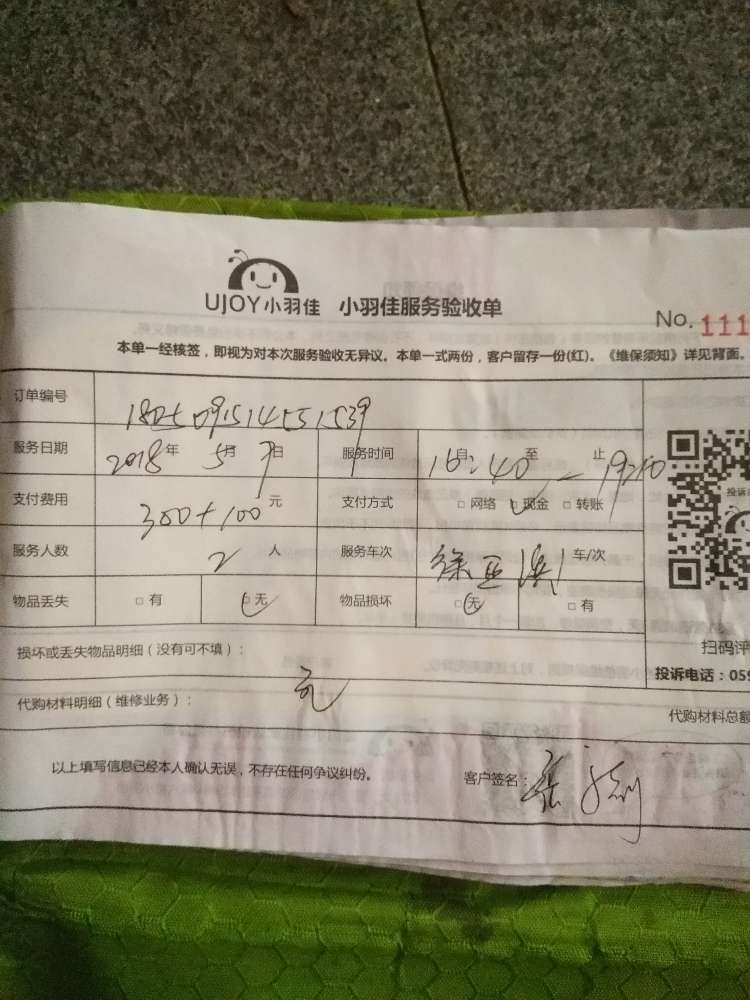 UJOY小羽佳 小羽佳服务验收单
No. 111
本单一经核签，即视为对本次服务验收无异议。本单一式两份，客户留存一份(红)。《维保须知》详见背面。
订单编号 1805091514551539
服务日期 2018年 5月 9日 服务时间 16:40 自 至 19:10 止
支付费用 300+100 元 支付方式 □ 网络 □ 现金 □ 转账
投诉
服务人数 2 人 服务车次 车/次
物品丢失 □ 有 □ 无 物品损坏 □ 无 □ 有
扫码评
损坏或丢失物品明细（没有可不填）：
投诉电话：059
代购材料明细（维修业务）： 无
代购材料总额
以上填写信息已经本人确认无误，不存在任何争议纠纷。 客户签名：